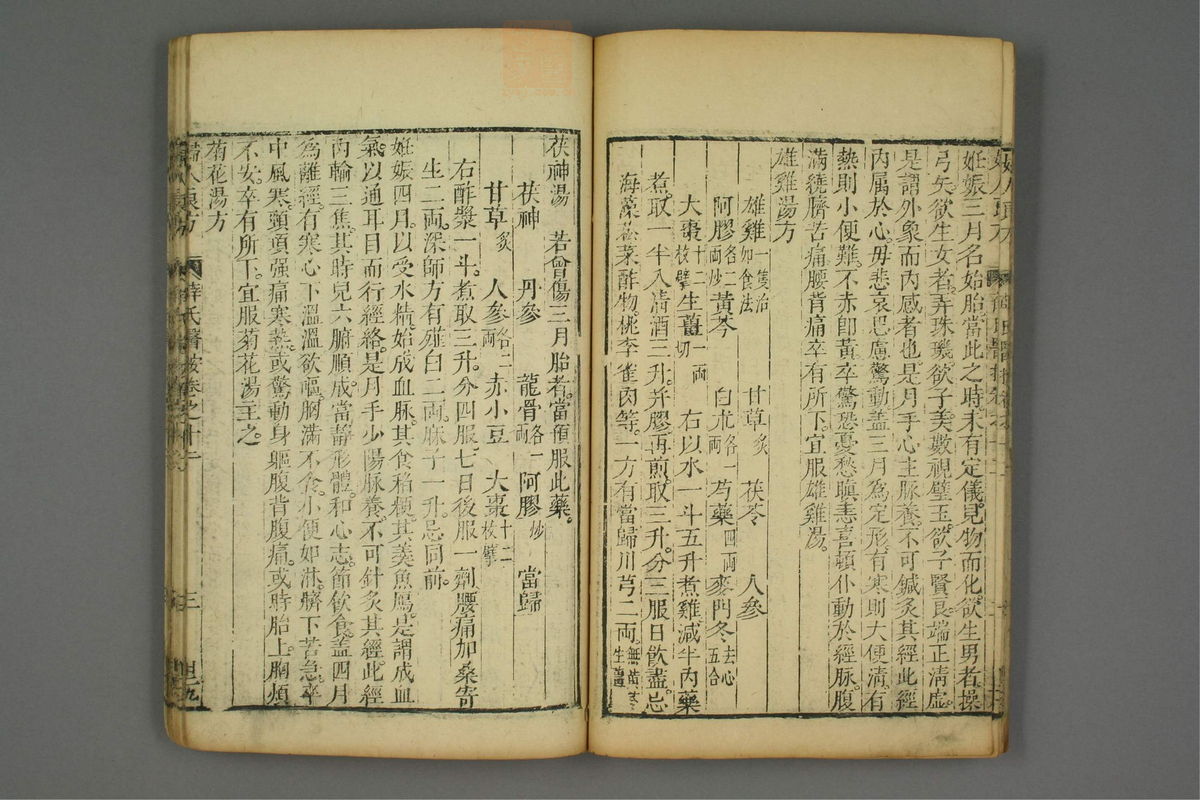 妊娠三月名始胎當此之時未有定儀見物而化欲生男者操
弓矢欲生女者弄珠璣欲子美數視璧玉欲子賢良端正清虛
是謂外象而内感者也是月手心主脉養不可鍼灸其經此經
内属於心毋悲哀思慮驚動盖三月爲定形有寒則大便清有
熱則小便難不赤卽黃卒驚恐憂愁嗔恚喜頓仆動於經脉腹
滿繞臍苦痛腰背痛卒有所下宜服雄雞湯
雄雞湯方
雄雞一隻治如食法 甘草炙 茯苓 人參
阿膠各二両炒 黃芩 白朮各一両 芍藥四両 麥門冬去心五合
大棗十二枚擘 生薑一両切 右以水一斗五升煮雞减半内藥
煮取一半入清酒三升并膠再煎取三升分三服日飲盡忌
海藻菘菜酢物桃李雀肉等一方有當歸川芎二両無黃芩生薑
茯神湯 若曾傷三月胎者當預服此藥
茯神 丹參 龍骨各一両 阿膠炒 當歸
甘草炙 人參各二両 赤小豆 大棗十二枚擘
右酢漿一斗煮取三升分四服七日後服一劑腰痛加桑寄
生二両深師方有薤白二両麻子一升忌同前
妊娠四月以受水精始成血脉其食稻粳其羮魚鴈是謂成血
氣以通耳目而行經絡是月手少陽脉養不可針灸其經此經
内輸三焦其時兒六腑順成當靜形體和心志節飲食盖四月
爲離經有寒心下溫溫欲嘔胸滿不食小便如淋臍下苦急卒
中風寒頭項强痛寒熱或驚動身軀腰背腹痛或時胎上胸煩
不安卒有所下宜服菊花湯主之
菊花湯方
婦人良方 薛氏醫按卷之十二 三